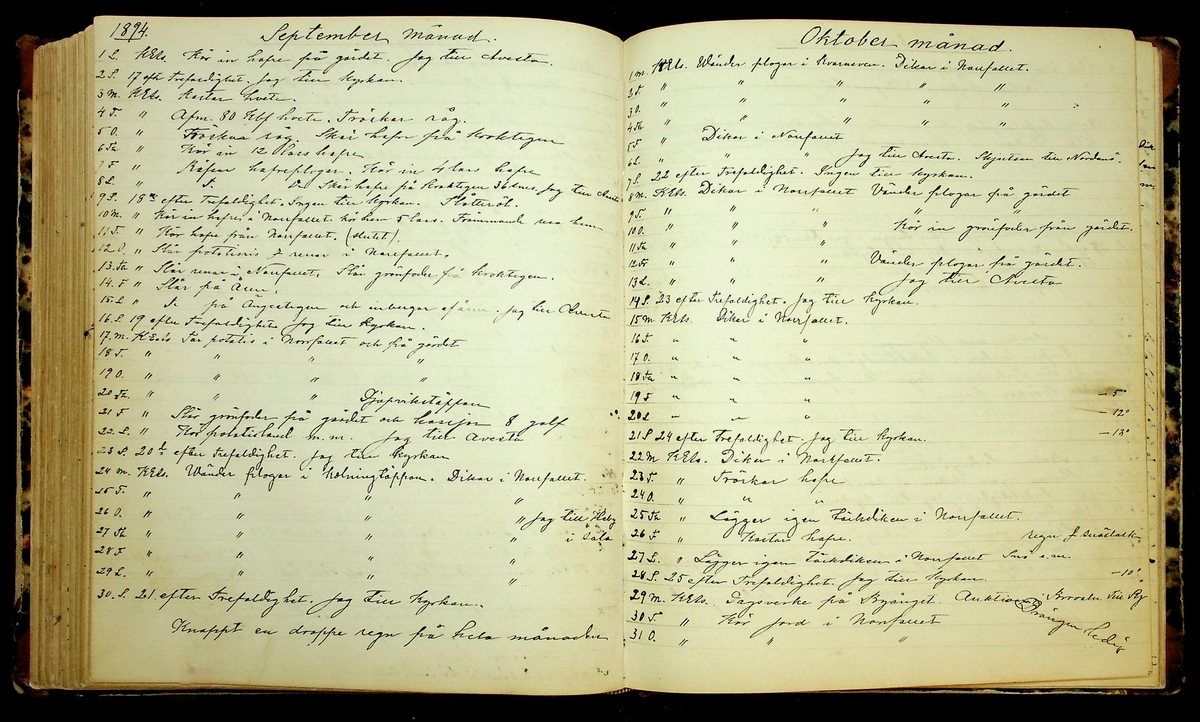 1894.
September månad.
1 L. KEls. Kör in hafre på gärdet. Jag till Avesta.
2 S. 17 efter Trefaldighet. Jag till kyrkan.
3 M. KEls. Kastar hvete.
4 T. " Afm. 80 hvete. Tröskar råg.
5 O. " Tröskar råg. Skär hafre på Kroktegen
6 Th " Kör in 12 lass hafre
7 F " hafreplogar. Kör in 4 lass hafre
8 L. " Skär hafre på Kroktegen Jag till
9 S. 18de efter Trefaldighet. Ingen till kyrkan. Slåtteröl.
10 M. " Kör in hafre i Norrfallet. kör hem 5 lass. Främmande
11 T. " Kör hafre från Norrfallet. (slutet).
12 O. " Slår potatisris & renar i Norrfallet.
13 Th " Slår renar i Norrfallet. Slår grönfoder på Kroktegen.
14 F " Slår på
15 L " S. på Ängestegen och inbergar Jag till Avesta
16 S. 19 efter Trefaldighet. Jag till kyrkan.
17 M. KEls Tar potatis i Norrfallet och på gärdet
18 T. " " " "
19 O. " " " "
20 Th. " " "
21 F " Slår grönfoder på gärdet och 8 golf
22 L. " Kör potatisland m.m. Jag till Avesta
23 S. 20de efter Trefaldighet. Jag till kyrkan
24 M. KEls. Wänder plogar i Dikar i Norrfallet.
25 T. " " " "
26 O. " " " " Jag till Heby
27 Th " " " " i Sala
28 F " " " "
29 L. " " " "
30 S. 21 efter Trefaldighet. Jag till kyrkan.
Knappt en droppe regn på hela månaden
Oktober månad.
1 M. KEls. Wänder plogar i Kvarneven. Dikar i Norrfallet.
2 T " " " " "
3 O. " " " " "
4 Th " " " " "
5 F " Dikar i Norrfallet
6 L. " " " Jag till Avesta. Skjutsar till
7 S. 22 efter Trefaldighet. Ingen till kyrkan.
8 M. KEls. Dikar i Norrfallet Vänder plogar på gärdet
9 T. " " " "
10 O. " " " Kör in grönfoder från gärdet.
11 Th " " "
12 F " " " Vänder plogar på gärdet.
13 L. " " " Jag till Avesta
14 S. 23 efter Trefaldighet. Jag till kyrkan.
15 M KEls. Dikar i Norrfallet.
16 T. " " "
17 O. " " "
18 Th " " "
19 F " " " – 5
20 L " " " – 12°
21 S 24 efter Trefaldighet. Jag till kyrkan. – 13°
22 M KEls. Dikar i Norrfallet.
23 T. " Tröskar hafre
24 O. " " "
25 Th " Lägger igen Täckdiken i Norrfallet.
26 F " Kastar hafre. regn
27 L. " Lägger igen Täckdiken i Norrfallet Snö e.m.
28 S. 25 efter Trefaldighet. Jag till kyrkan – 10°
29 M. KEls. Dagsverke på Auktion i
30 T. " Kör jord i Norrfallet Drängen ledig
31 O. " " "